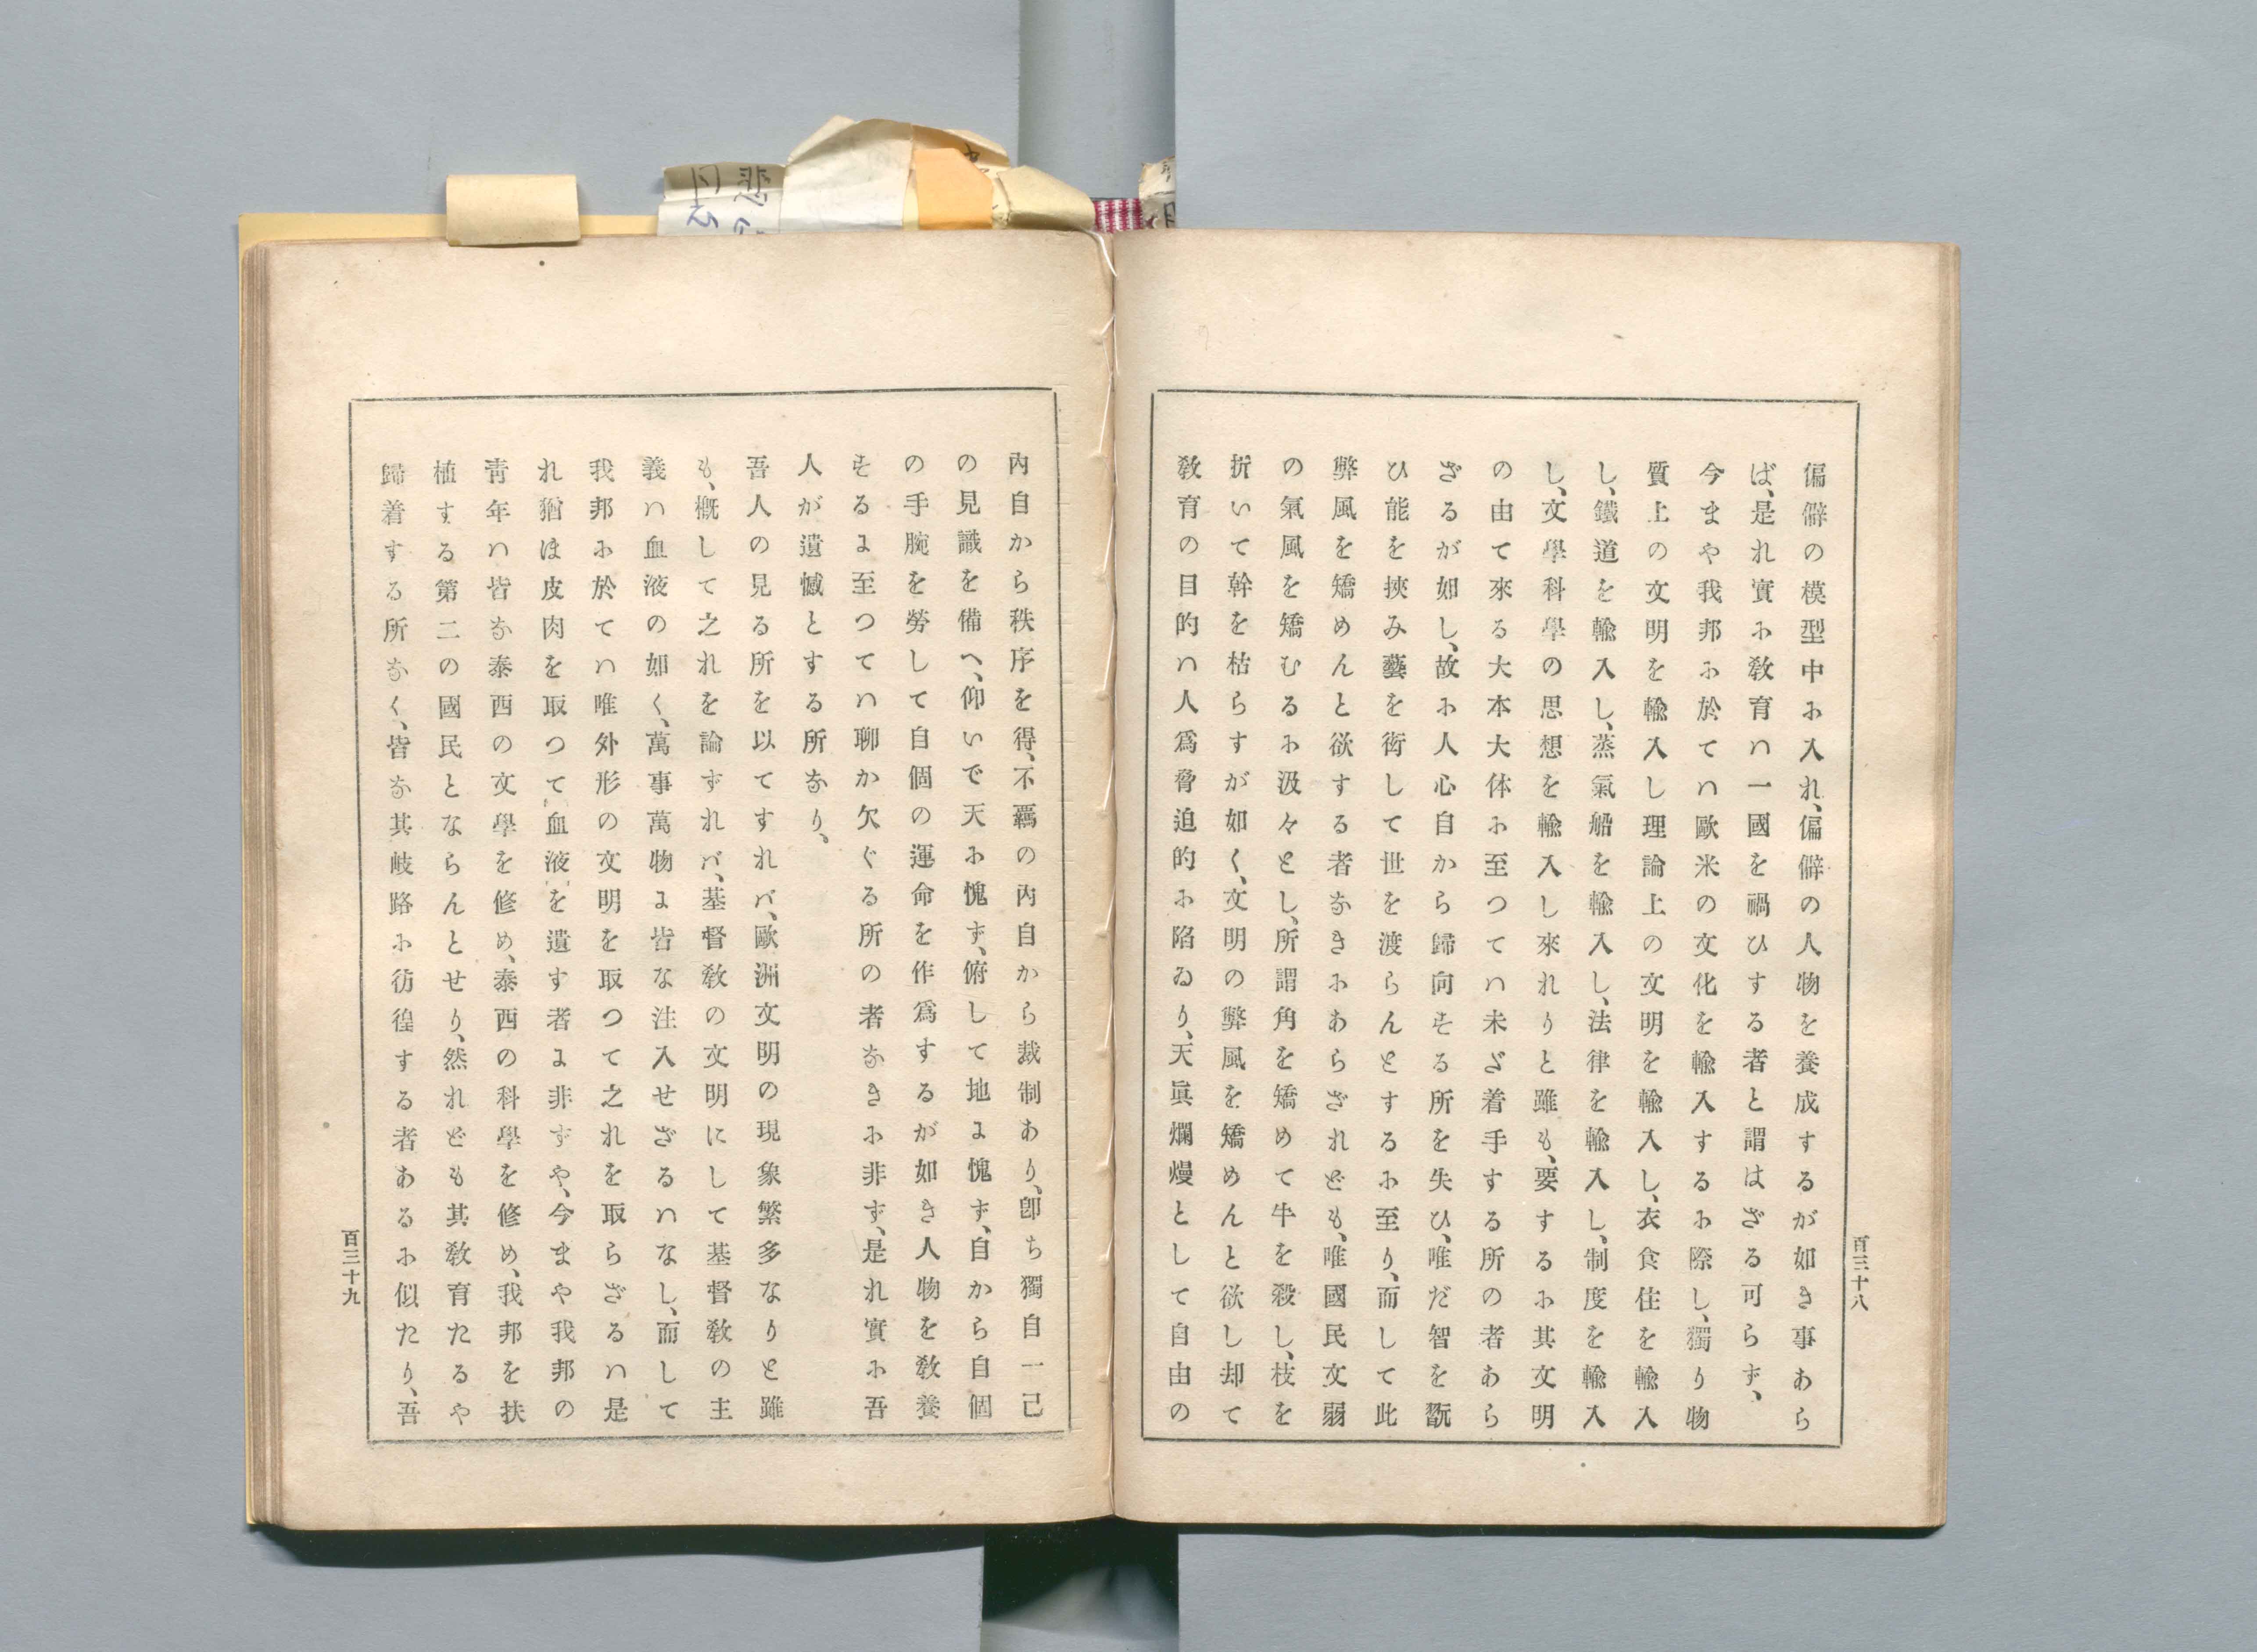 偏僻の模型中に入れ、偏僻の人物を養成するが如き事あら
ば、是れ實に敎育ハ一國を禍ひする者と謂はざる可らず、
今まや我邦に於てハ歐米の文化を輸入するに際し、獨り物
質上の文明を輸入し理論上の文明を輸入し、衣食住を輸入
し、鐵道を輸入し、蒸氣船を輸入し、法律を輸入し、制度を輸入
し、文學科學の思想を輸入し來れりと雖も、要するに其文明
の由て來る大本大体に至つてハ未ざ着手する所の者あら
ざるが如し、故に人心自から歸向する所を失ひ、唯だ智を翫
ひ能を挾み藝を衒して世を渡らんとするに至り、而して此
弊風を矯めんと欲する者なきにあらざれども、唯國民文弱
の氣風を矯むるに汲々とし、所謂角を矯めて牛を殺し、枝を
折いて幹を枯らすが如く、文明の弊風を矯めんと欲し却て
敎育の目的ハ人爲脅迫的に陷ゐり、天眞爛熳として自由の
百三十八
內自から秩序を得、不羈の內自から裁制あり、卽ち獨自一己
の見識を備へ、仰いで天に愧ず、俯して地に愧ず、自から自個
の手腕を勞して自個の運命を作爲するが如き人物を敎養
するに至つてハ聊か欠ぐる所の者なきに非ず、是れ實に吾
人が遺憾とする所なり、
吾人の見る所を以てすれバ、歐洲文明の現象繁多なりと雖
も、槪して之れを論ずれバ、基督敎の文明にして基督敎の主
義ハ血液の如く、萬事萬物に皆な注入せざるハなし、而して
我邦に於てハ唯外形の文明を取つて之れを取らざるハ是
れ猶ほ皮肉を取つて血液を遺す者に非ずや、今まや我邦の
靑年ハ皆な泰西の文學を修め、泰西の科學を修め、我邦を扶
植する第二の國民とならんとせり、然れども其敎育たるや
歸着する所なく、皆な其岐路に彷徨する者あるに似たり、吾
百三十九